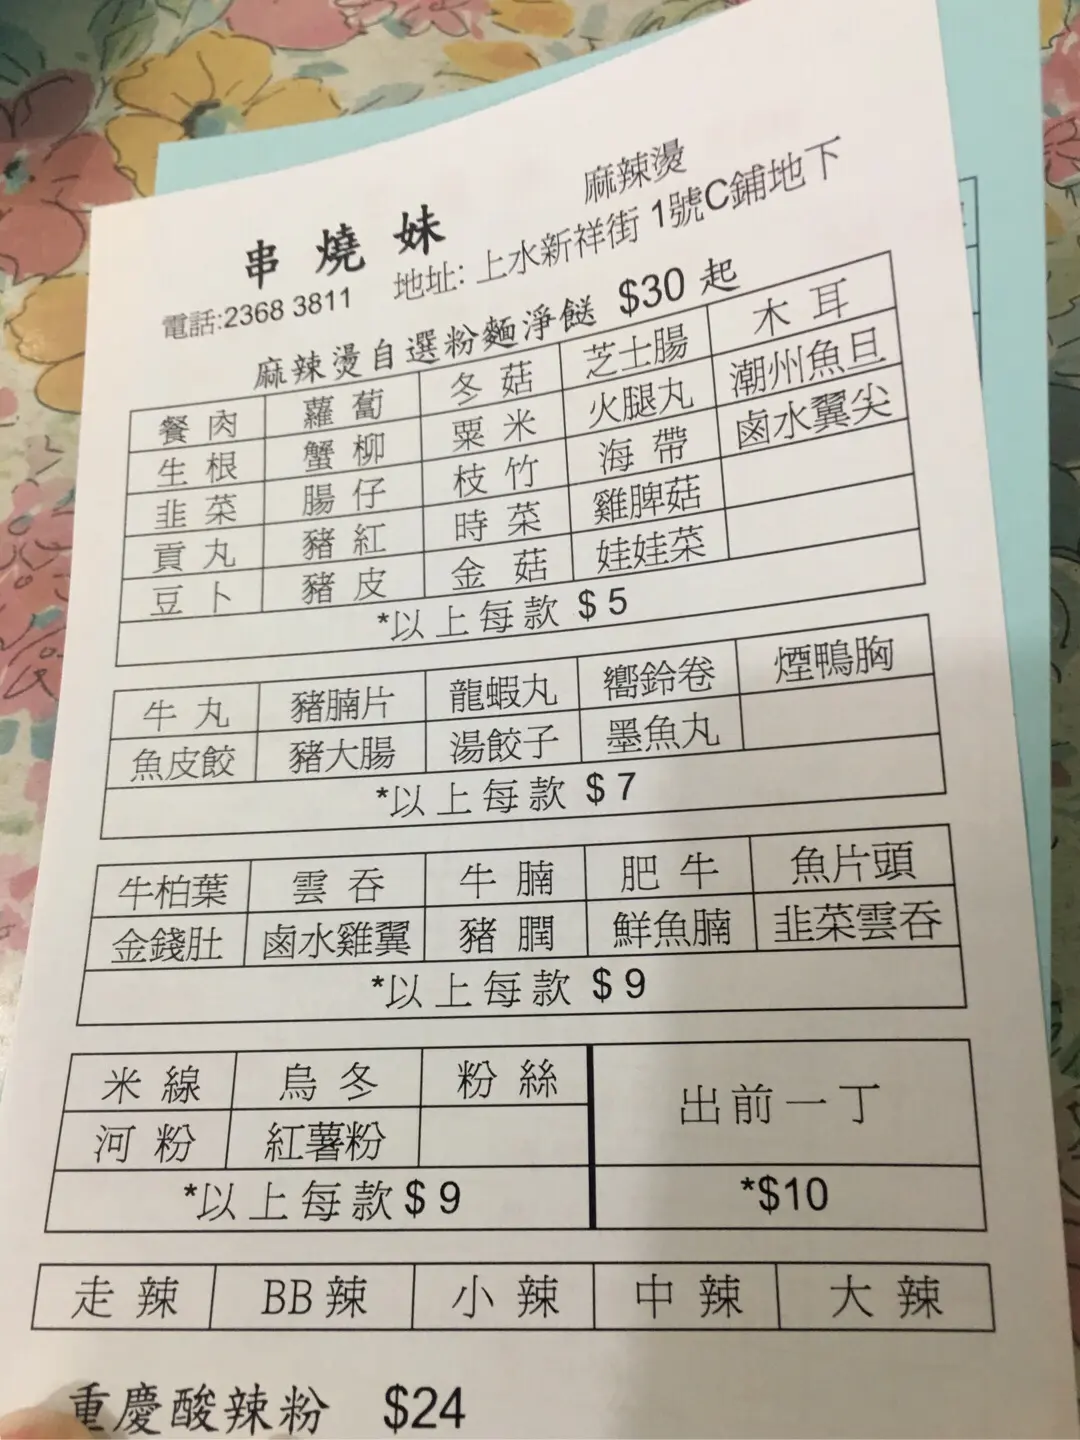 麻辣燙
串燒妹
地址: 上水新祥街 1號C鋪地下
電話:2368 3811
麻辣燙自選粉麵淨餸 $30 起
餐肉 蘿蔔 冬菇 芝士腸 木耳
生根 蟹柳 粟米 火腿丸 潮州魚旦
韭菜 腸仔 枝竹 海帶 鹵水翼尖
貢丸 豬紅 時菜 雞脾菇
豆卜 豬皮 金菇 娃娃菜
*以上每款 $5
牛丸 豬腩片 龍蝦丸 嚮鈴卷 煙鴨胸
魚皮餃 豬大腸 湯餃子 墨魚丸
*以上每款 $7
牛柏葉 雲吞 牛腩 肥牛 魚片頭
金錢肚 鹵水雞翼 豬膶 鮮魚腩 韭菜雲吞
*以上每款 $9
米線 烏冬 粉絲 出前一丁
河粉 紅薯粉
*以上每款$9 *$10
走辣 BB辣 小辣 中辣 大辣
重慶酸辣粉 $24